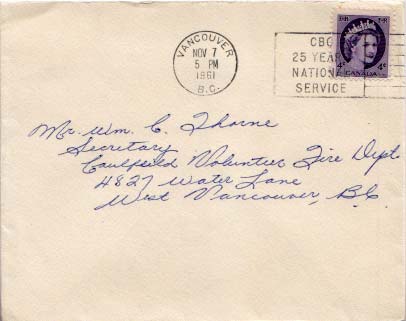 VANCOUVER
NOV 7
5 PM
1961
B.C.
CBC
25 YEAR
NATION
SERVICE
4¢ CANADA 4¢
Mr. Wm. C. Thorne
Secretary
Caulfeild Volunteer Fire Dept
4827 Water Lane
West Vancouver, B.C.